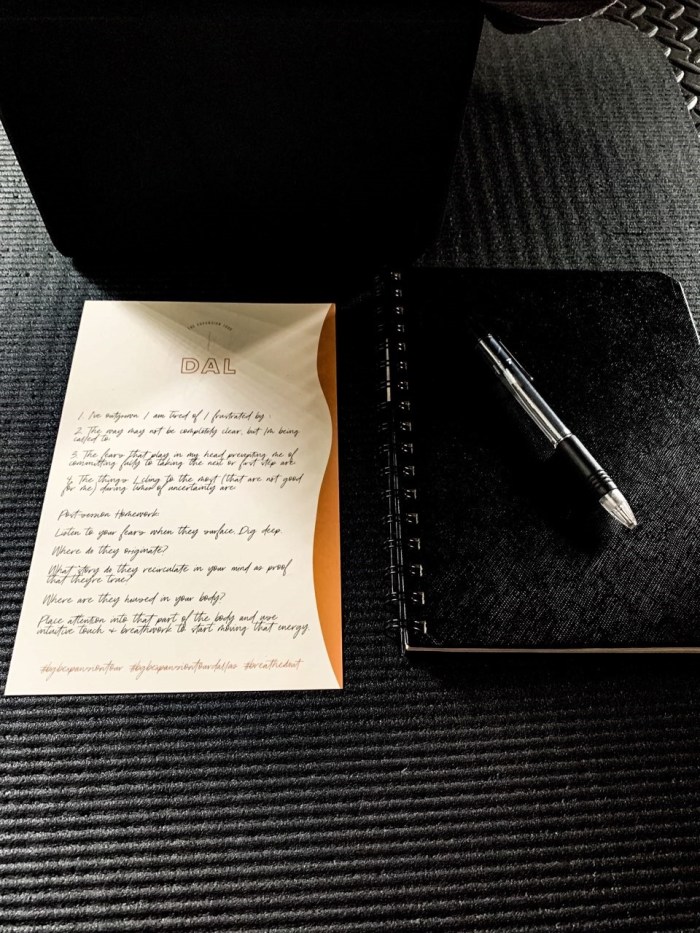 THE EXPANSION TOUR
DAL
1. I've outgrown / am tired of / frustrated by :
2. The way may not be completely clear, but I'm being
called to
3. The fears that play in my head preventing me of
committing fully to taking the next or first step are
4. The things I cling to the most (that are not good
for me) during times of uncertainty are
Post-session Homework
Listen to your fears when they surface. Dig deep.
Where do they originate?
What story do they recirculate in your mind as proof
that they're true?
Where are they housed in your body?
Place attention into that part of the body and use
intuitive touch + breathwork to start moving that energy.
#bgbexpansiontour #bgbexpansiontourdallas #breathedeit